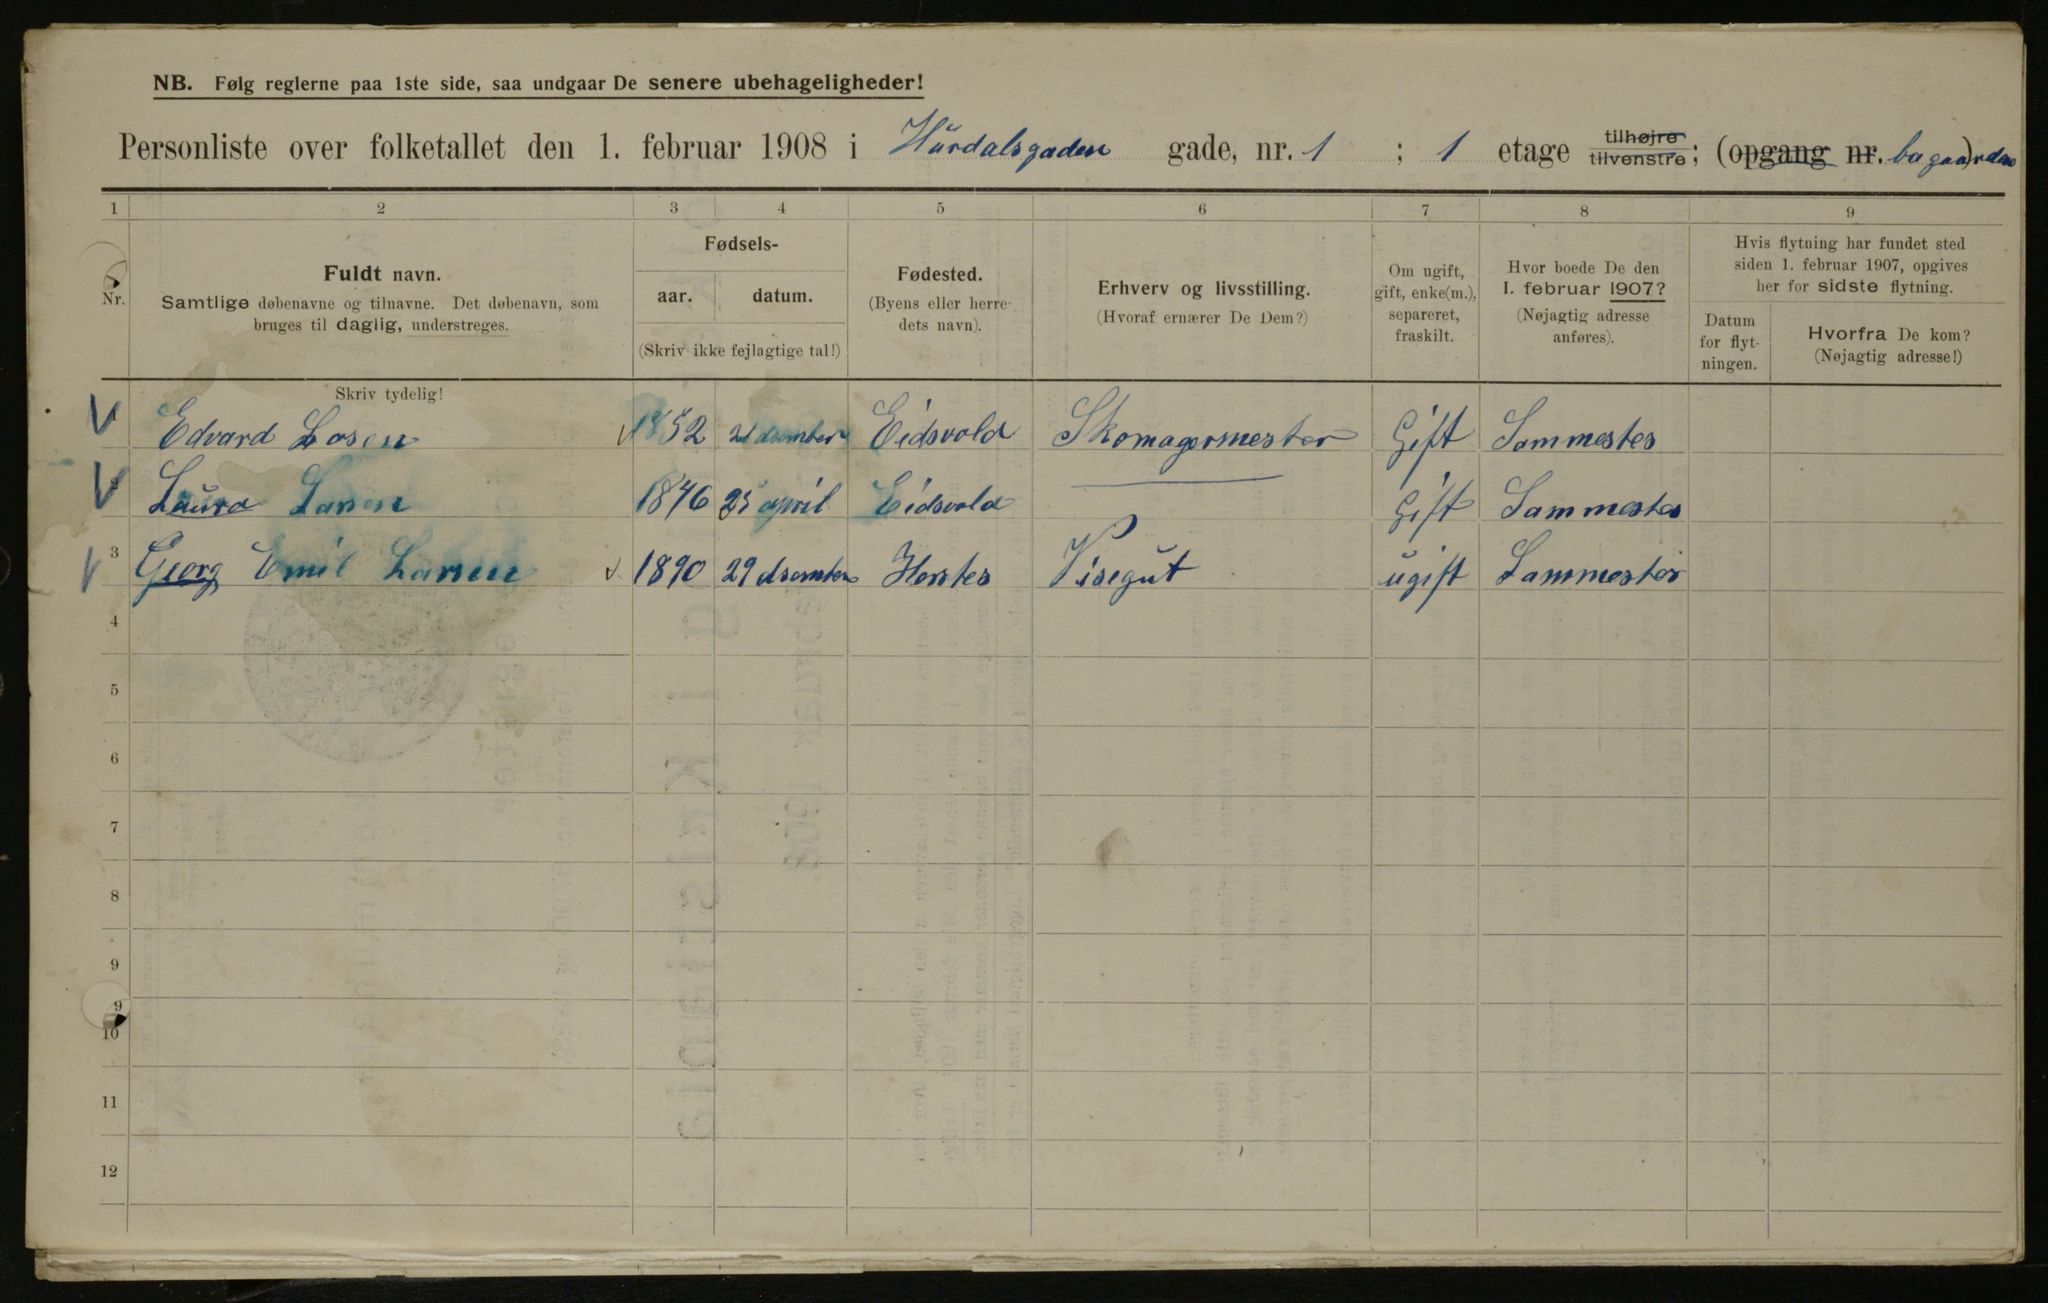 NB. Følg reglerne paa 1ste side, saa undgaar De senere ubehageligheder!
Personliste over folketallet den 1. februar 1908 i Hürdalsgaden gade, nr. 1 ; 1 etage tilhøjre tilvenstre; (opgang nr. bagaarden)
1 2 3 4 5 6 7 8 9
Nr.
Fuldt navn.
Samtlige døbenavne og tilnavne. Det døbenavn, som
bruges til daglig, understreges.
Fødsels-
aar. datum.
(Skriv ikke fejlagtige tal!)
Fødested.
(Byens eller herre-
dets navn).
Erhverv og livsstilling.
(Hvoraf ernærer De Dem?)
Om ugift,
gift, enke(m.),
separeret,
fraskilt.
Hvor boede De den
1. februar 1907?
(Nøjagtig adresse
anføres).
Hvis flytning har fundet sted
siden 1. februar 1907, opgives
her for sidste flytning.
Datum
for flyt-
ningen.
Hvorfra De kom?
(Nøjagtig adresse!)
Skriv tydelig!
1 Edvard Lasen 1852 21 dsember Eidsvold Skomagermester Gift Sammestes
2 Laura Larsen 1846 25 april Eidsvold Gift Sammestes
3 Georg Emil Larsen 1890 29 dsember Herstes Visegut ugift Sammestes
4
5
6
7
8
9
9
10
11
12